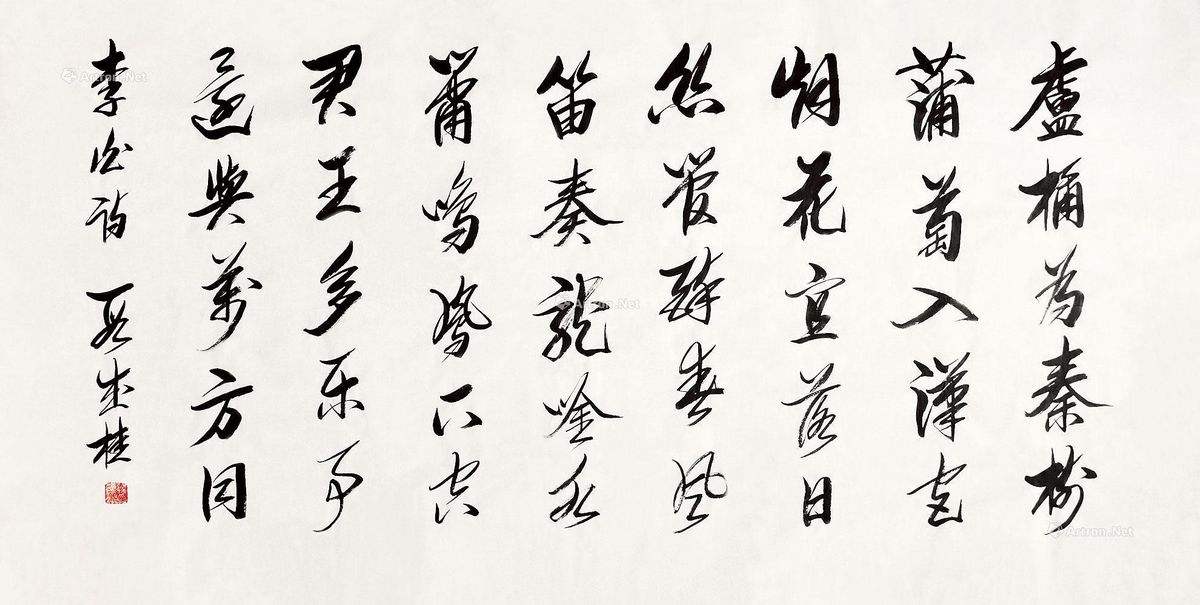 盧桶为秦樹
蒲萄入漢宮
烟花宜落日
絲管醉春風
笛奏龍吟水
簫鳴鳳下空
君王多乐事
還與萬方同
李白詩 段成桂
Artron.Net
Artron.Net
Artron.Net